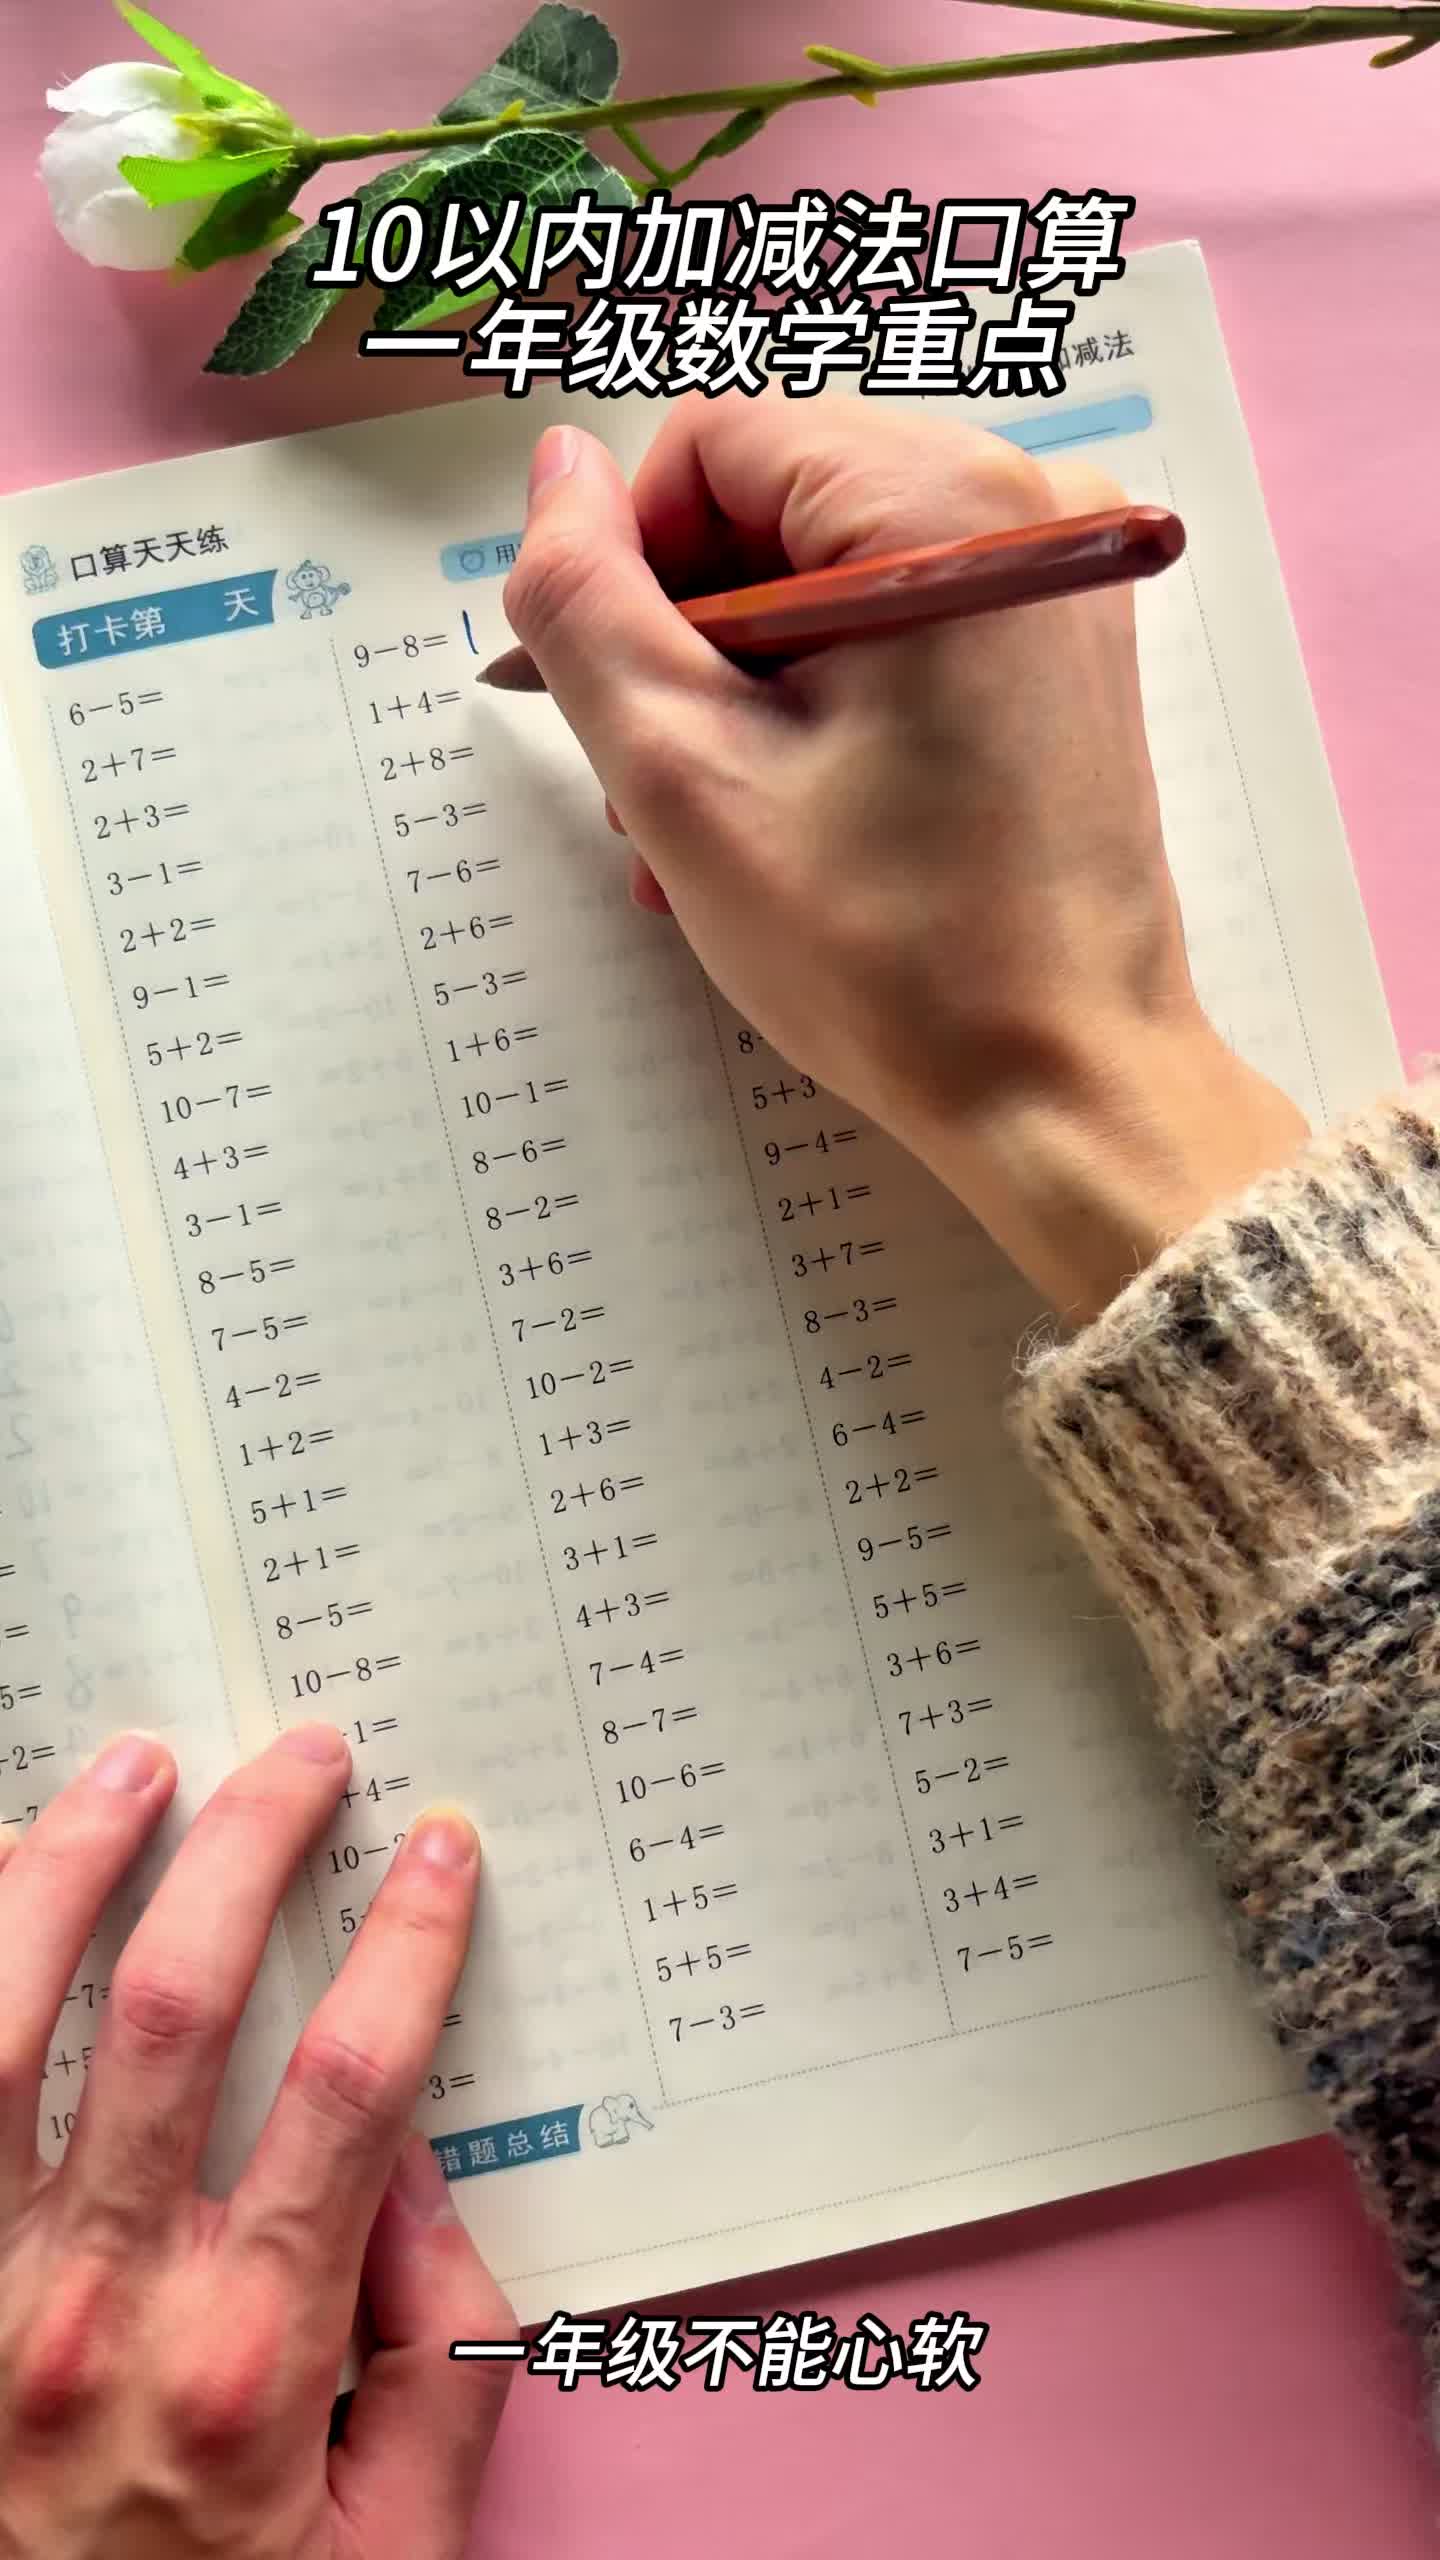 10以内加减法口算
一年级数学重点
加减法
口算天天练
打卡第 天
用
6-5=
2+7=
2+3=
3-1=
2+2=
9-1=
5+2=
10-7=
4+3=
3-1=
8-5=
7-5=
4-2=
1+2=
5+1=
2+1=
8-5=
10-8=
-1=
+4=
10-
5
=
3=
9-8=1
1+4=
2+8=
5-3=
7-6=
2+6=
5-3=
1+6=
10-1=
8-6=
8-2=
3+6=
7-2=
10-2=
1+3=
2+6=
3+1=
4+3=
7-4=
8-7=
10-6=
6-4=
1+5=
5+5=
7-3=
8-
5+3
9-4=
2+1=
3+7=
8-3=
4-2=
6-4=
2+2=
9-5=
5+5=
3+6=
7+3=
5-2=
3+1=
3+4=
7-5=
错题总结
一年级不能心软